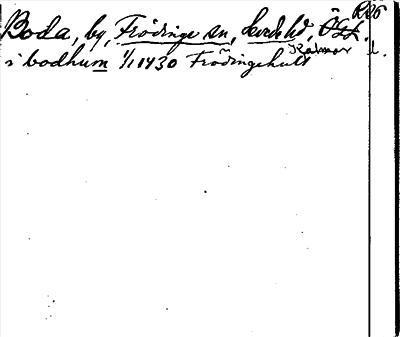 RAÖ
Boda, by, Frödinge sn, Sevede hd, Ögl.
Kalmar l.
i bodhum 1/1 1430 Frödingehult